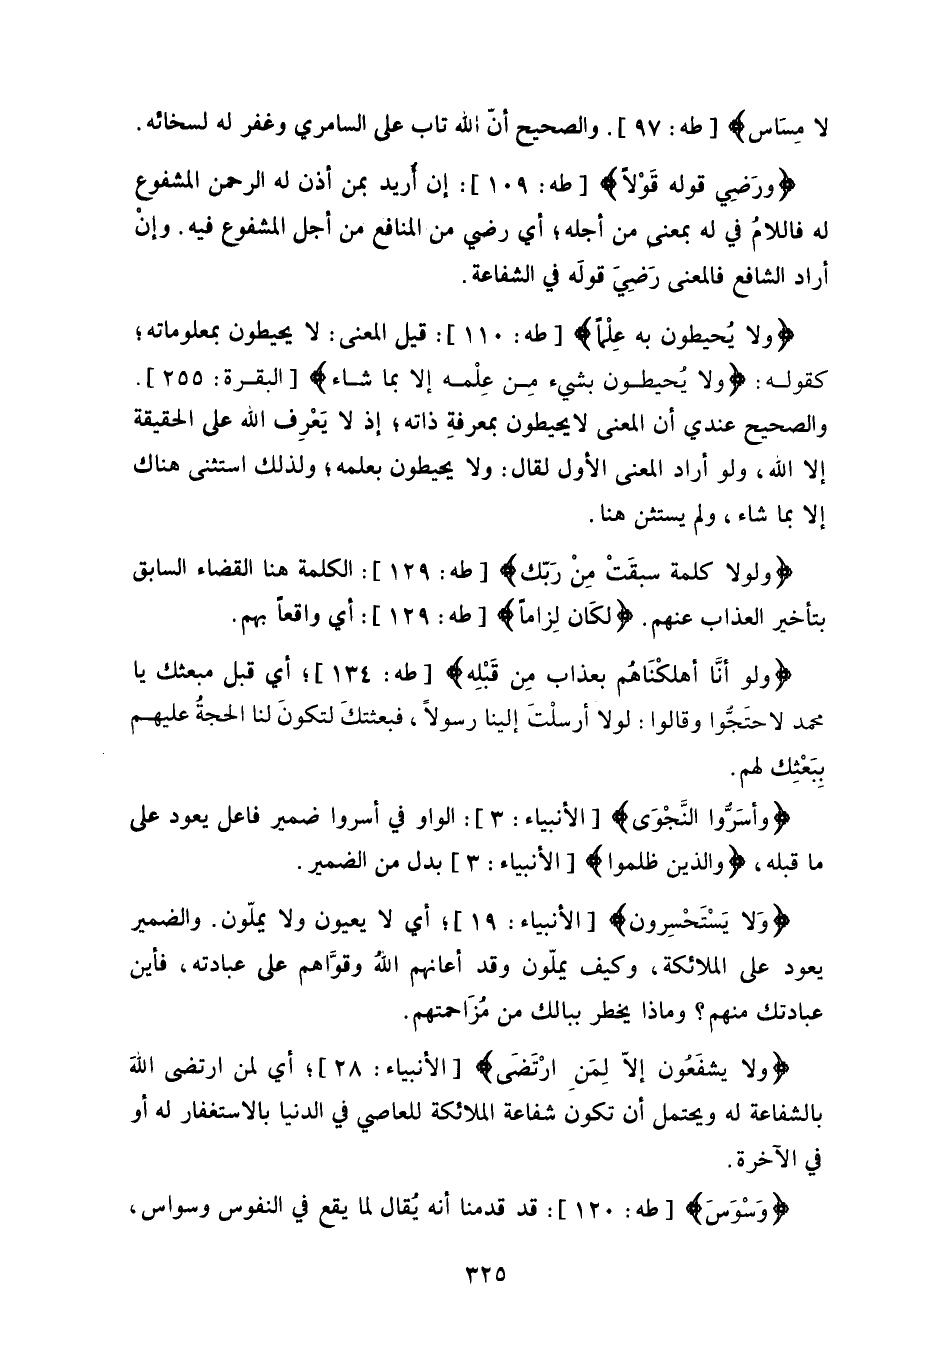 لا مِسَاس﴾ [ طه: ٩٧ ]. والصحيح أنّ الله تاب على السامري وغفر له لسخائه.
﴿ورَضِي قوله قَوْلاً﴾ [ طه: ١٠٩ ]: إن أُريد بمن أذن له الرحمن المشفوع
له فاللامُ في له بمعنى من أجله؛ أي رضي من المنافع من أجل المشفوع فيه. وإنْ
أراد الشافع فالمعنى رَضِيَ قولَه في الشفاعة.
﴿ولا يُحيطون به عِلْماً﴾ [ طه: ١١٠ ]: قيل المعنى: لا يحيطون بمعلوماته؛
كقولـه: ﴿ولا يُحيطـون بشيء مِـن عِلْمـه إلا بما شـاء﴾ [ البقـرة: ٢٥٥ ].
والصحيح عندي أن المعنى لايحيطون بمعرفةِ ذاته؛ إذ لا يَعْرِف الله على الحقيقة
إلا الله، ولو أراد المعنى الأول لقال: ولا يحيطون بعلمه؛ ولذلك استثنى هناك
إلا بما شاء، ولم يستثن هنا.
﴿ولولا كلمة سبقَتْ مِنْ رَبّك﴾ [ طه: ١٢٩ ]: الكلمة هنا القضاء السابق
بتأخير العذاب عنهم. ﴿لكَان لِزاماً﴾ [ طه: ١٢٩ ]: أي واقعاً بهم.
﴿ولو أنَّا أهلكْنَاهُم بعذاب مِن قَبْلِه﴾ [ طه: ١٣٤ ]؛ أي قبل مبعثك يا
محمد لاحتَجُّوا وقالوا: لولا أرسلْتَ إلينا رسولاً، فبعثتكَ لتكونَ لنا الحجةُ عليهـم
بِبَعْثِك لهم.
﴿وأسَرُّوا النَّجْوَى﴾ [ الأنبياء: ٣ ]: الواو في أسروا ضمير فاعل يعود على
ما قبله، ﴿والذين ظلموا﴾ [ الأنبياء: ٣ ] بدل من الضمير.
﴿وَلا يَسْتَحْسِرون﴾ [ الأنبياء: ١٩ ]؛ أي لا يعيون ولا يملّون. والضمير
يعود على الملائكة، وكيف يملّون وقد أعانهم اللهُ وقوَّاهم على عبادته، فأين
عبادتك منهم؟ وماذا يخطر ببالك من مُزَاحمتهم.
﴿ولا يشفَعُون إلاّ لِمَنِ ارْتَضَى﴾ [ الأنبياء: ٢٨ ]؛ أي لمن ارتضى اللهَ
بالشفاعة له ويحتمل أن تكون شفاعة الملائكة للعاصي في الدنيا بالاستغفار له أو
في الآخرة.
﴿وَسْوَسَ﴾ [ طه: ١٢٠ ]: قد قدمنا أنه يُقال لما يقع في النفوس وسواس،
٣٢٥